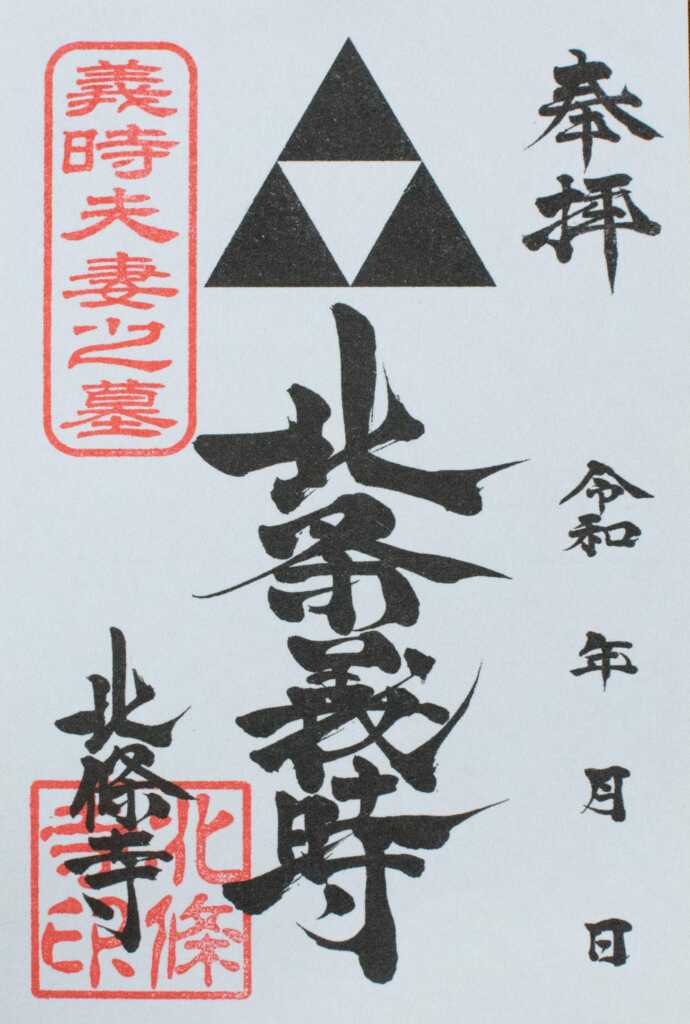 奉拝
令和 年 月 日
北条義時
北條寺
義時夫妻之墓
北條
寺印